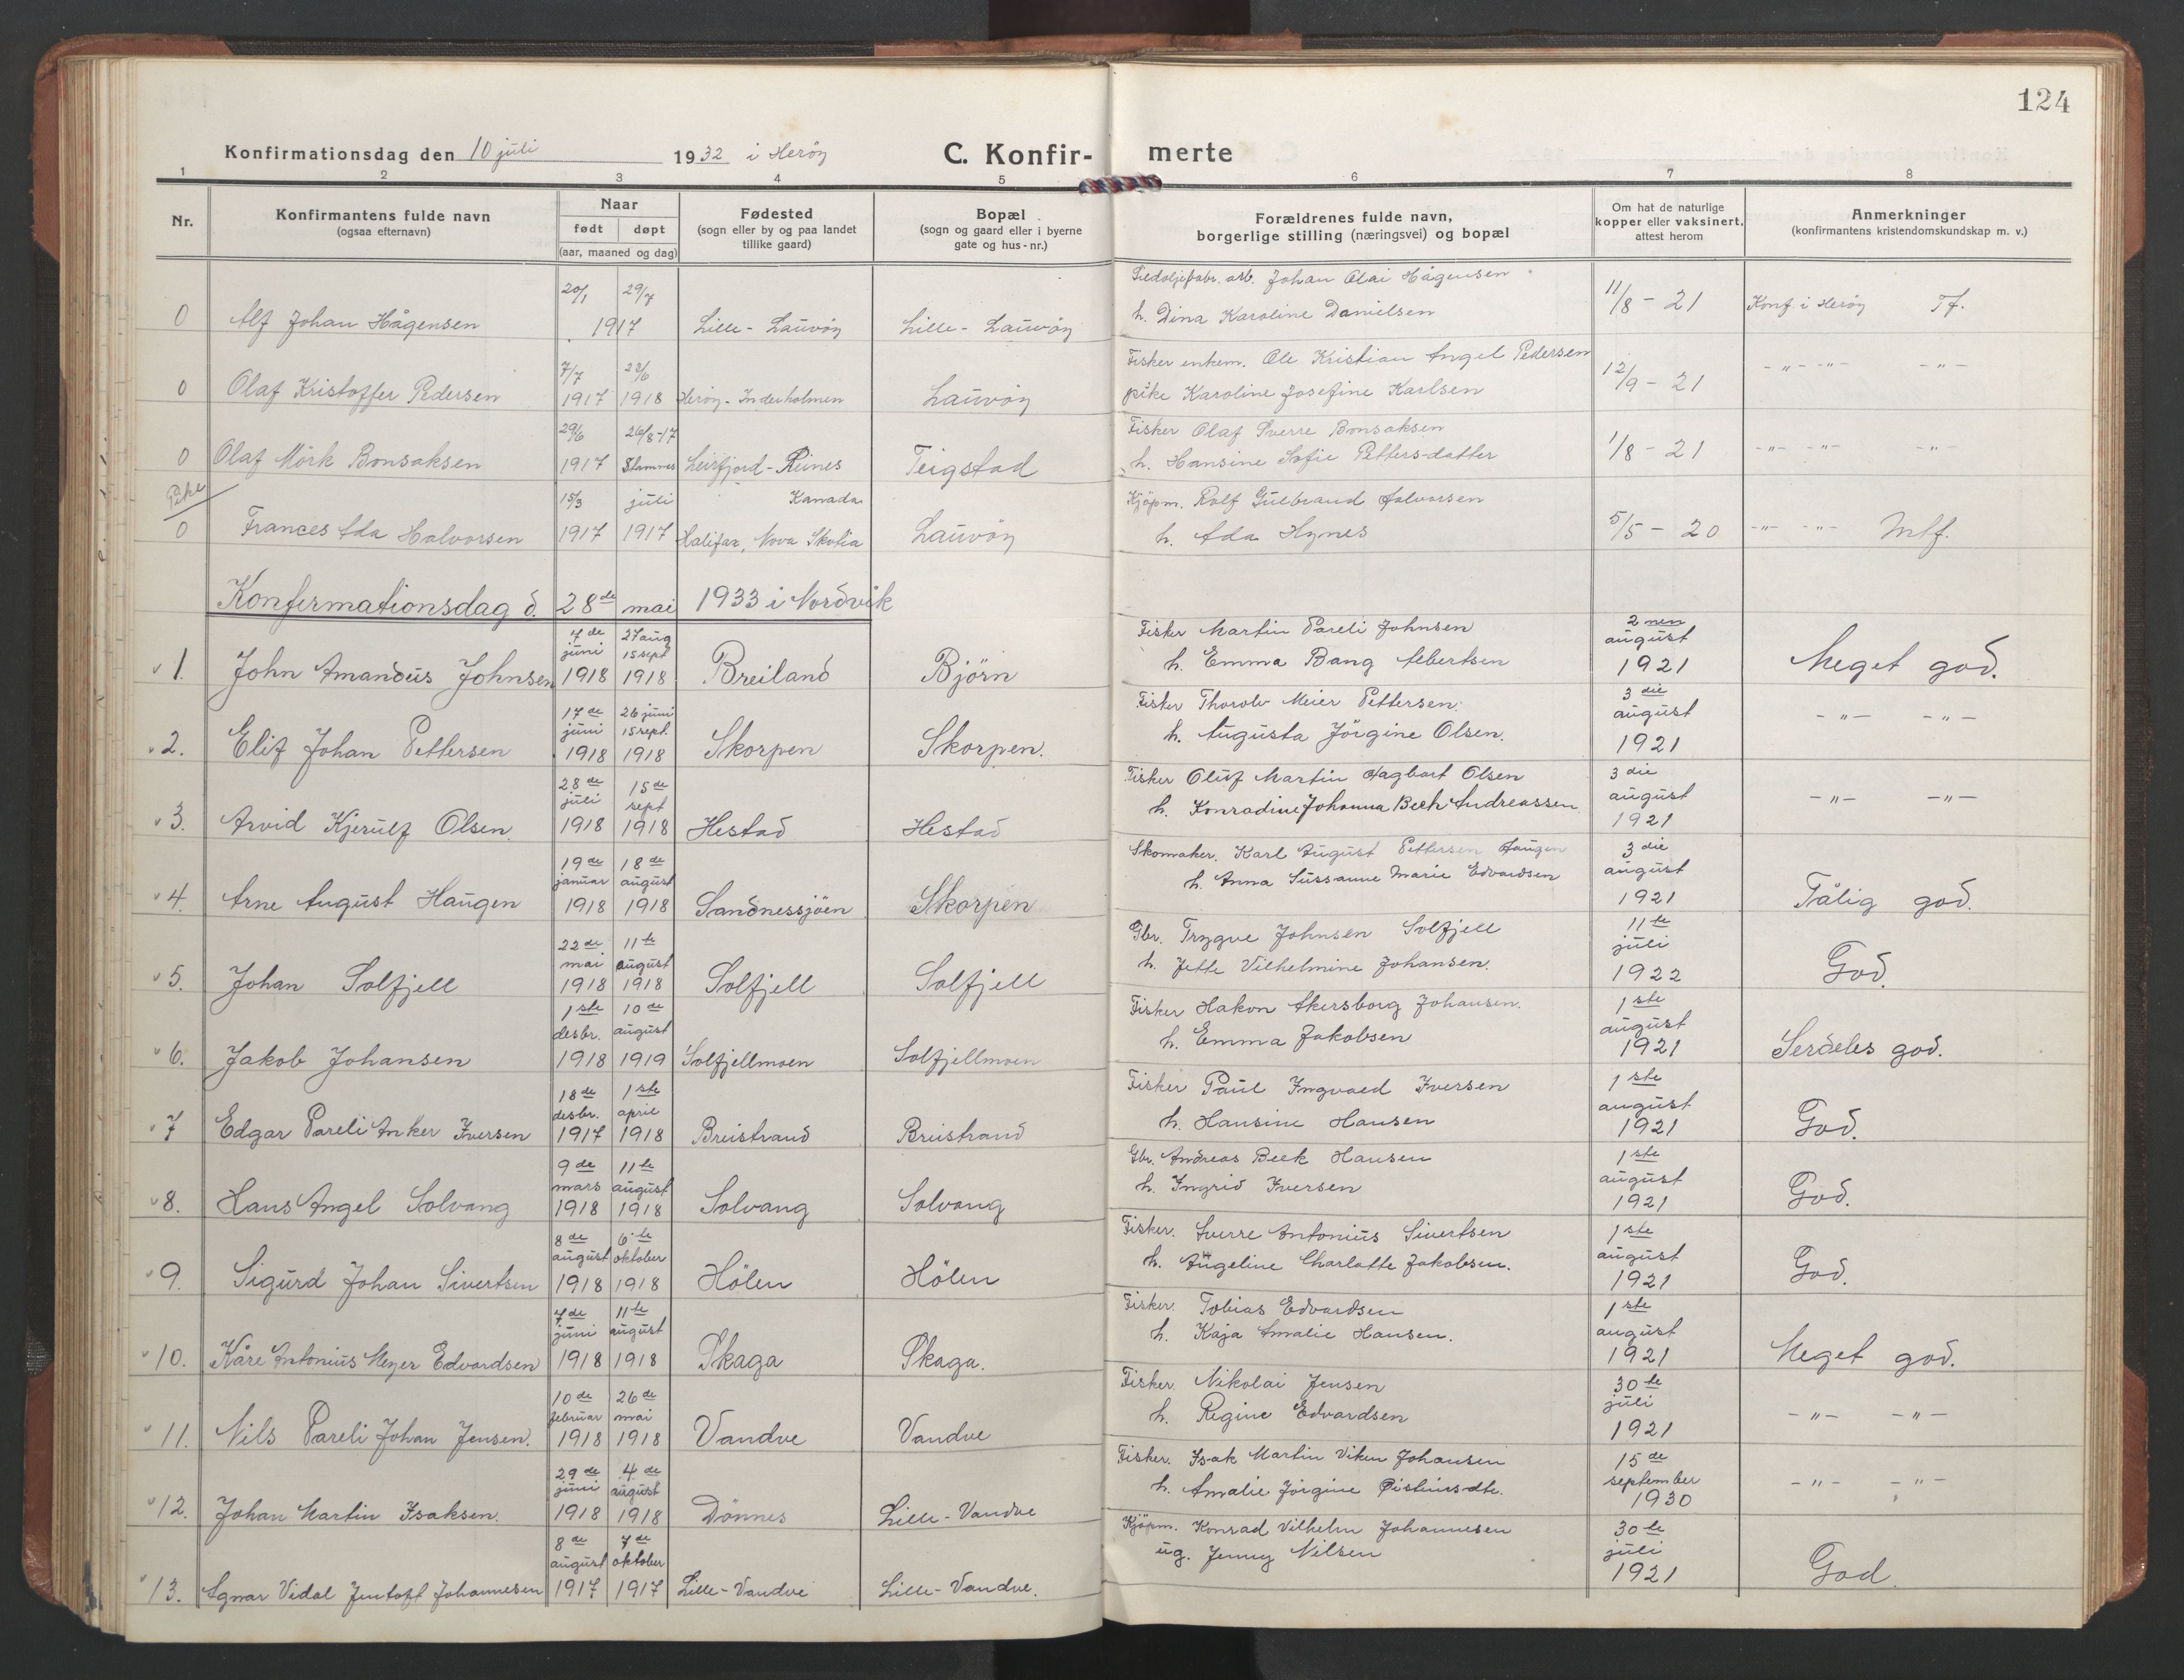 124
Konfirmationsdag den 10 juli 1932 i Herøy
C. Konfir- merte
1 2 3 4 5 6 7 8
Nr.
Konfirmantens fulde navn
(ogsaa efternavn)
Naar
født døpt
(aar, maaned og dag)
Fødested
(sogn eller by og paa landet
tillike gaard)
Bopæl
(sogn og gaard eller i byerne
gate og hus-nr.)
Forældrenes fulde navn,
borgerlige stilling (næringsvei) og bopæl
Om hat de naturlige
kopper eller vaksinert,
attest herom
Anmerkninger
(konfirmantens kristendomskundskap m. v.)
20/1 29/7 Sildoljefabr. arb. Johan Olai Hågensen
0 Alf Johan Hågensen 1917 Lille-Lauvöy Lille-Lauvöy h. Dina Karoline Danielsen 11/8 - 21 Konf i Heröy Tf.
7/7 Fisker enkem. Ole Kristian Angel Pedersen
0 Olaf Kristoffer Pedersen 1917 1918 Heröy-Inderholmen Lauvöy pike Karoline Josefine Karlsen 12/9 - 21 -"- -"- -"-
29/6 26/8-17 Fisker Olaf Sverre Bonsaksen
0 Olaf Mörk Bonsaksen 1917 Stamnes Leirfjord-Reines Teigstad h. Hansine Sofie Petters-datter 1/8 - 21 -"- -"- -"-
Pike 15/3 juli Kanada Kjöpm. Rolf Gulbrand Halvorsen
0 Frances Ada Halvorsen 1917 1917 Halifax, Nova Skotia Lauvöy h. Ada Hynes 5/5 - 20 -"- -"- Mtf.
Konfirmationsdag d. 28de mai 1933 i Nordvik
4de juni 27 aug 15 sept Fisker Martin Pareli Johnsen 2nen august
1. John Amandus Johnsen 1918 1918 Breiland Björn h. Emma Bang Albertsen 1921 Meget god.
17de juni 26 juni 15 sept. Fisker Thorolv Meier Pettersen. 3die august
2. Elif Johan Pettersen 1918 1918 Skorpen Skorpen. h. Augusta Jörgine Olsen. 1921 -"- -"-
28de juli 15de sept Fisker Oluf Martin Hagbart Olsen 3die august
3. Arvid Kjerulf Olsen 1918 1918 Hestad Hestad h. Konradine Johanna Bech Andreassen 1921 -"- -"-
19de januar 18de august Skomaker. Karl August Pettersen Haugen 3die august
4. Arne August Haugen 1918 1918 Sandnessjöen Skorpen h. Anna Sussanne Marie Edvardsen 1921 Tålig god.
22de mai 11te august Gbr. Trygve Johnsen Solfjell 11te juli
5. Johan Solfjell 1918 1918 Solfjell Solfjell h. Jette Vilhelmine Johansen. 1922 God.
1ste desbr. 10de august Fisker Hakon Akersborg Johansen. 1ste august
6. Jakob Johansen 1918 1919 Solfjellmoen Solfjellmoen h. Emma Jakobsen 1921 Serdeles god.
18de desbr. 1ste april Fisker Paul Ingvaed Iversen 1ste august
7 Edgar Pareli Anker Iversen 1917 1918 Breistrand Breistrand h. Hansine Hansen 1921 God.
9de mars 11te august Gbr. Andreas Beck Hansen 1ste august
8. Hans Angel Solvang 1918 1918 Solvang Solvang h. Ingrid Iversen 1921 God.
8de august 6te oktober Fisker. Sverre Antonius Sivertsen 1ste august
9. Sigurd Johan Sivertsen 1918 1918 Hölen Hölen h. Angeline Charlotte Jakobsen. 1921 God.
7de juni 11te august Fisker. Tobias Edvardsen 1ste august
10. Kåre Antonius Meyer Edvardsen 1918 1918 Skaga Skaga. h. Kaja Amalie Hansen. 1921 Meget god.
10de februar 26de mai Fisker. Nikolai Jensen 30te juli
11. Nils Pareli Johan Jensen. 1918 1918 Vandve Vandve h. Regine Edvardsen 1921 -"- -"-
29de juni 4de august Fisker. Isak Martin Viken Johansen 15de september
12. Johan Martin Isaksen. 1918 1918 Dönnes Lille-Vandve h. Amalie Jörgine 1930 -"- -"-
8de august 7de oktober Kjöpm. Konrad Vilhelm Johannesen 30te juli
13. Agnar Vidal Jentoft Johannesen 1917 1917 Lille-Vandve Lille-Vandve. ug. Jenny Nilsen 1921 God.